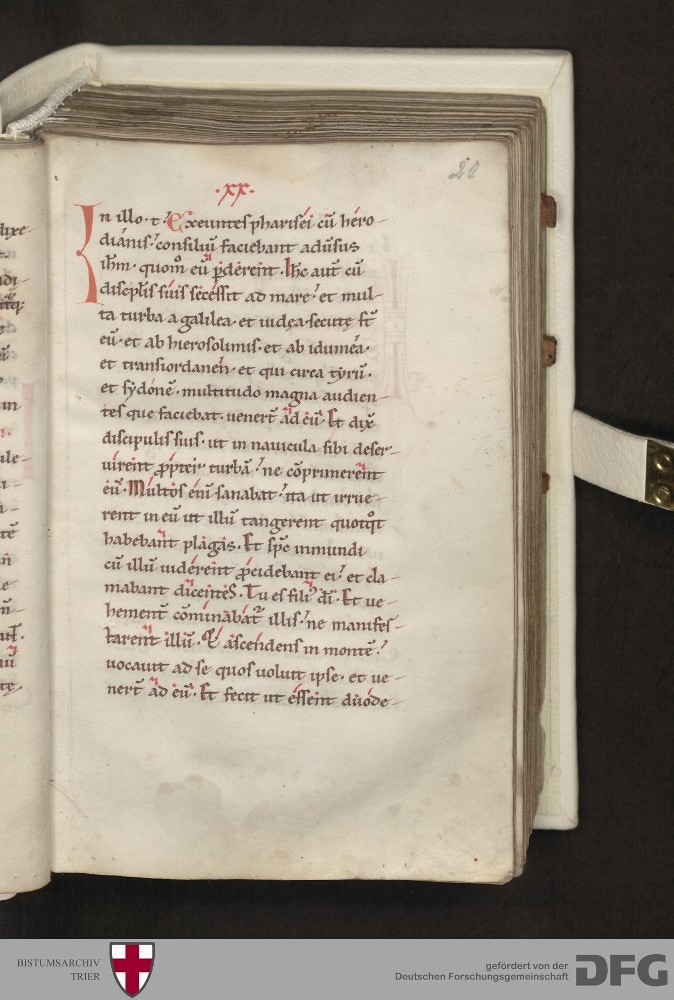 20
·xx·
In illo·t· Exeuntes pharisei cū hero-
dianis· consiliū faciebant adūsus
ihm̄· quom̊ eū ꝑderent· Ihc aut̄ cū
discipl̄is suis secessit ad mare· et mul-
ta turba a galilea· et iudęa secutę st̄
eū· et ab hierosolimis· et ab idumea·
et transiordanen· et qui circa tyrū·
et sydonē· multitudo magna audien-
tes que faciebat· venert̄ ad eū· Et dix̄
discipulis suis· ut in navicula sibi deser-
virent ꝓpter turbā· ne cōprimerent
eū· Multos enī sanabat· ita ut irrue-
rent in eū ut illū tangerent quotqͦt
habebant plagas· Et sp̄c inmundi
cū illū viderent ꝓcidebant ei· et cla-
mabant dicentes· Tu es filiꝰ dī· Et ve-
hement̄ cōminabat᷑ illis· ne manifes-
tarent illū· Et ascendens in montē·
vocavit ad se quos voluit ipse· et ve-
nert̄ ad eū· Et fecit ut essent duode-
BISTUMSARCHIV
TRIER
gefördert von der
Deutschen Forschungsgemeinschaft
DFG